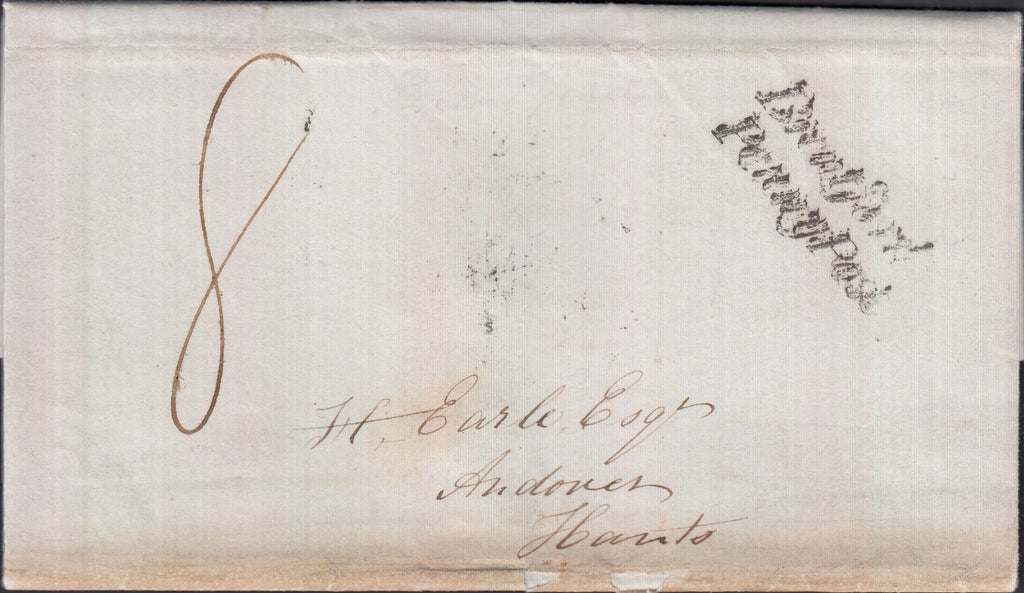 8
Penny Post
H. Earle, Esqr
Andover
Hants